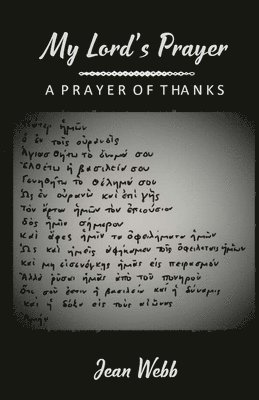 My Lord's Prayer
A PRAYER OF THANKS
Πάτερ ἡμῶν
ὁ ἐν τοῖς οὐρανοῖς
Ἁγιασθήτω τὸ ὄνομά σου
Ἐλθέτω ἡ βασιλεία σου
Γενηθήτω τὸ θέλημά σου
Ὡς ἐν οὐρανῷ καὶ ἐπὶ γῆς
τὸν ἄρτον ἡμῶν τὸν ἐπιούσιον
δὸς ἡμῖν σήμερον
καὶ ἄφες ἡμῖν τὰ ὀφειλήματα ἡμῶν
Ὡς καὶ ἡμεῖς ἀφήκαμεν τοῖς ὀφειλέταις ἡμῶν
καὶ μη εἰσενέγκῃς ἡμᾶς εἰς πειρασμόν
Ἀλλὰ ῥῦσαι ἡμᾶς ἀπὸ τοῦ πονηροῦ
Ὅτι σοῦ ἐστιν ἡ βασιλεία καὶ ἡ δύναμις
καὶ ἡ δόξα εἰς τοὺς αἰῶνας
Ἀμήν
Jean Webb